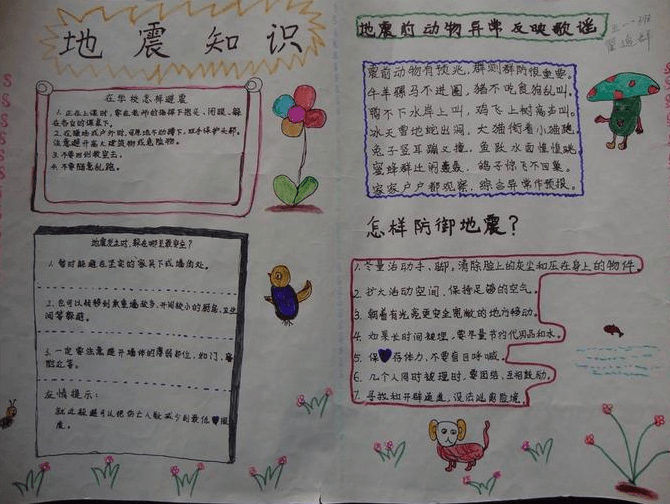 地震知识
在学校怎样避震
1. 正在上课时，要在老师的指挥下抱头、闭眼、躲
在各自的课桌下。
2. 在操场或户外时，可原地不动蹲下，双手保护头部，
注意避开高大建筑物或危险物。
3. 不要回到教室去。
4. 不要随意乱跑。
地震发生时，躲在哪里最安全？
1. 暂时躲避在坚实的家具下或墙角处。
2. 也可以转移到承重墙较多、开间较小的厨房、卫生
间等躲避。
3. 一定要注意避开墙体的薄弱部位，如门、窗
附近等。
友情提示：
就此躲避可以把伤亡人数减少到最低限
度。
地震前动物异常反映歌谣
震前动物有预兆，群测群防很重要。
牛羊骡马不进圈，猪不吃食狗乱叫。
鸭不下水岸上叫，鸡飞上树高声叫。
冰天雪地蛇出洞，大猫衔着小猫跑。
兔子竖耳蹦又撞，鱼跃水面惶惶跳。
蜜蜂群迁闹轰轰，鸽子惊飞不回巢。
家家户户都观察，综合异常作预报。
怎样防御地震？
1. 尽量活动手、脚，清除脸上的灰尘和压在身上的物件。
2. 扩大活动空间，保持足够的空气。
3. 朝着有光亮更安全宽敞的地方移动。
4. 如果长时间被埋，要尽量节约代用品和水。
5. 保存体力，不要盲目呼喊。
6. 几个人同时被埋时，要团结，互相鼓励。
7. 寻找和开辟通道，设法逃离险境。